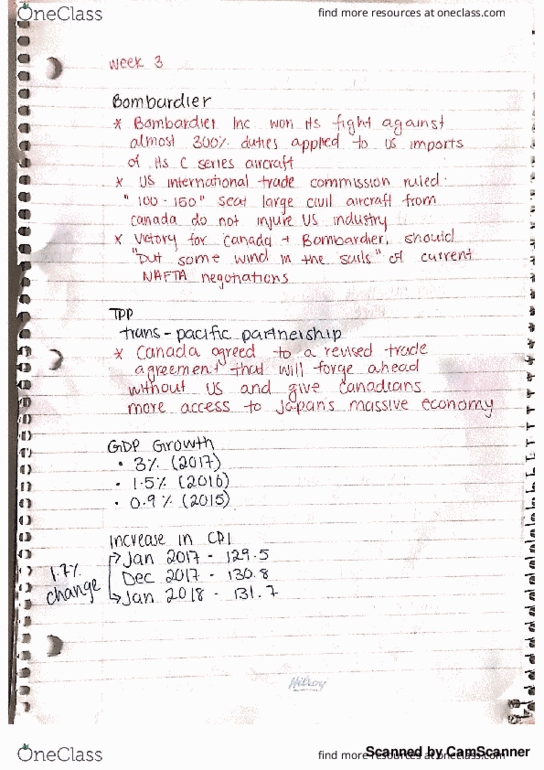 OneClass
find more resources at oneclass.com
Week 3
Bombardier
* Bombardier Inc won its fight against
almost 300% duties applied to US imports
of its C series aircraft
* US international trade commission ruled
"100-150" seat large civil aircraft from
canada do not injure US industry
* Victory for Canada + Bombardier, should
"put some wind in the sails" of current
NAFTA negotiations
TPP
trans-pacific partnership
* Canada agreed to a revised trade
agreement that will forge ahead
without US and give Canadians
more access to Japan's massive economy
GDP Growth
• 3% (2017)
• 1.5% (2016)
• 0.9% (2015)
Increase in CPI
Jan 2017 - 129.5
1.7% change
Dec 2017 - 130.8
Jan 2018 - 131.7
Hilroy
OneClass
find more resources at oneclass.com
Scanned by CamScanner